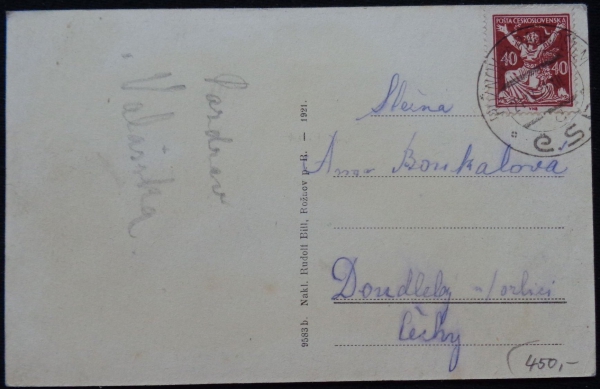 Pozdrav
Valaška.
9583 b. Nakl. Rudolf Bill, Rožnov p. R. — 1921.
POŠTA ČESKOSLOVENSKÁ
40 40
Slečna
Anna Boukalova
Doudleby n/orlicí
Čechy
450,-